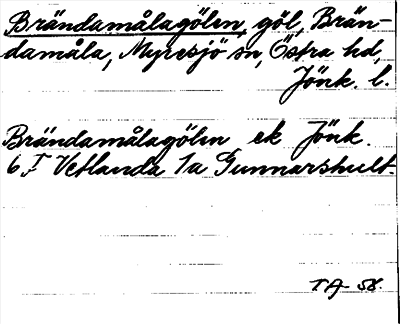 Brändamålagölen, göl, Brän-
damåla, Myresjö sn, Östra hd,
Jönk. l.
Brändamålagölen ek Jönk.
6 F Vetlanda 1a Gunnarshult.
TA 58.